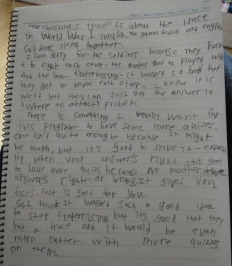 The Christmas truce is about the truce
in World War 1 the german and english
soldiers living together.
I feel sorry for the soldiers because they have
to fight each other the mates that he played with
and the boy fraternising. it wasn't so bad that
they got to know each other. I know it is
but they can just get the answer to
where to attack problem.
There is something I really want for
this program to have some more quizzes.
one isn't quite enough because it might
be much, but it's good to solve it especia
lly when your answer's right. it's good
to have more quizes because no matter
answers right or wrong, it gives you
facts. that is good for you.
So I think it wasn't such a good idea
to stop fraternising but its good that they
had a truce and it would be even
more better with more quizzes
on them.